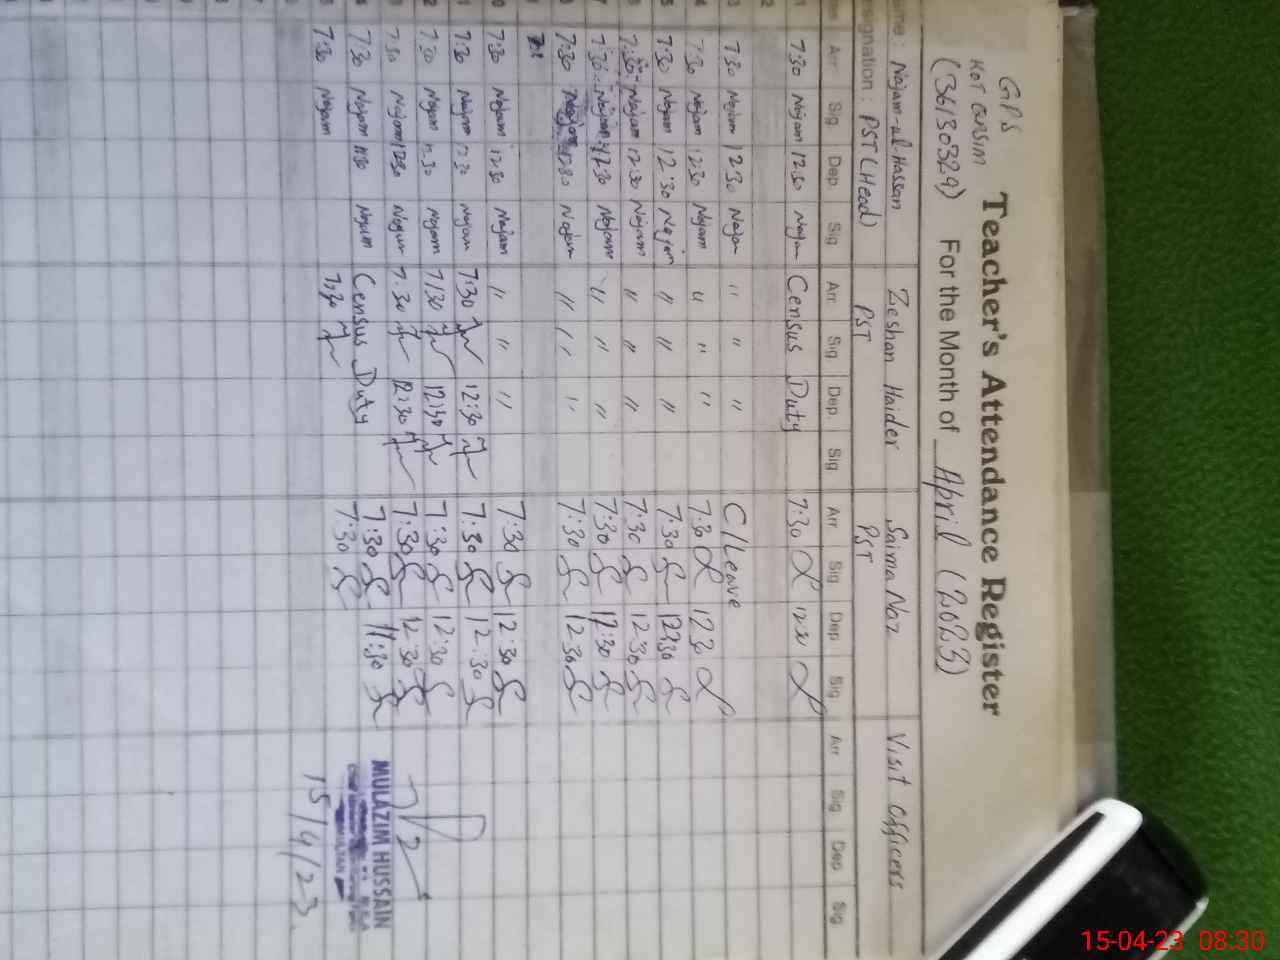 GPS
KOT QASIM
(36130329)
Teacher's Attendance Register
For the Month of April (2023)
Name : Najam-ul-Hassan Zeshan Haider Saima Naz Visit Officers
Designation : PST (Head) PST PST
Arr Sig Dep. Sig Arr Sig Dep. Sig Arr Sig Dep Sig Arr Sig Dep Sig
1 7:30 Najam 12:30 Najam Census Duty 7:30 12:30
2
3 7:30 Najam 12:30 Najam " " " C/Leave
4 7:30 Najam 12:30 Najam " " " 7:30 12:30
5 7:30 Najam 12:30 Najam " " " 7:30 12:30
6 7:30 Najam 12:30 Najam " " " 7:30 12:30
7 7:30 Najam 12:30 Najam " " " 7:30 12:30
8 7:30 Najam 12:30 Najam " " " 7:30 12:30
0 7:30 Najam 12:30 Najam " " " 7:30 12:30
1 7:30 Najam 12:30 Najam 7:30 12:30 7:30 12:30
2 7:30 Najam 12:30 Najam 7:30 12:30 7:30 12:30
3 7:30 Najam 12:30 Najam 7:30 12:30 7:30 12:30
4 7:30 Najam 11:30 Najam Census Duty 7:30 11:30
5 7:30 Najam 7:30 7:30
MULAZIM HUSSAIN
15/4/23
15-04-23 08:30